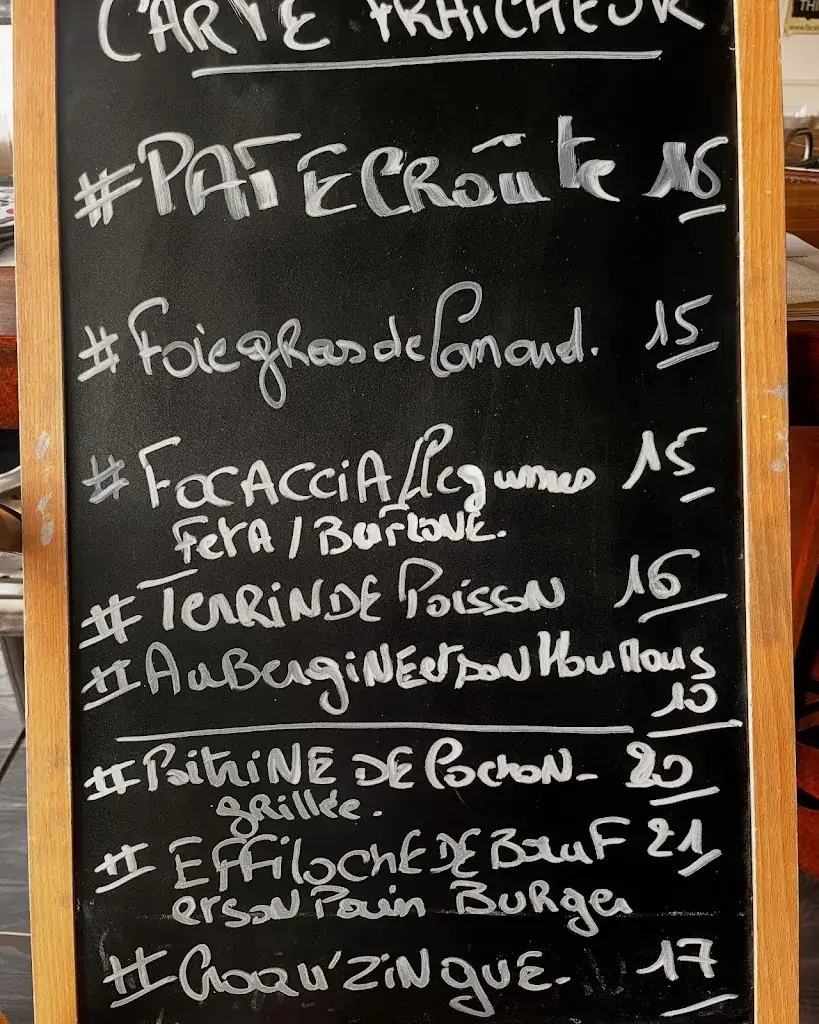 CARTE FRAICHEUR
#PATE CROûte 16
#Foie gras de Canard. 15
#FOCACCIA/Légumes 15
FeTA / BURRATE.
#TERRINDE POISSON 16
#AuBergiNE et son Houmous
10
#PoitriNE DE Cochon- 20
grillée.
#EFFilochE DE BœuF 21
et son Pain BURger
#Croqu'ZiNgUE- 17